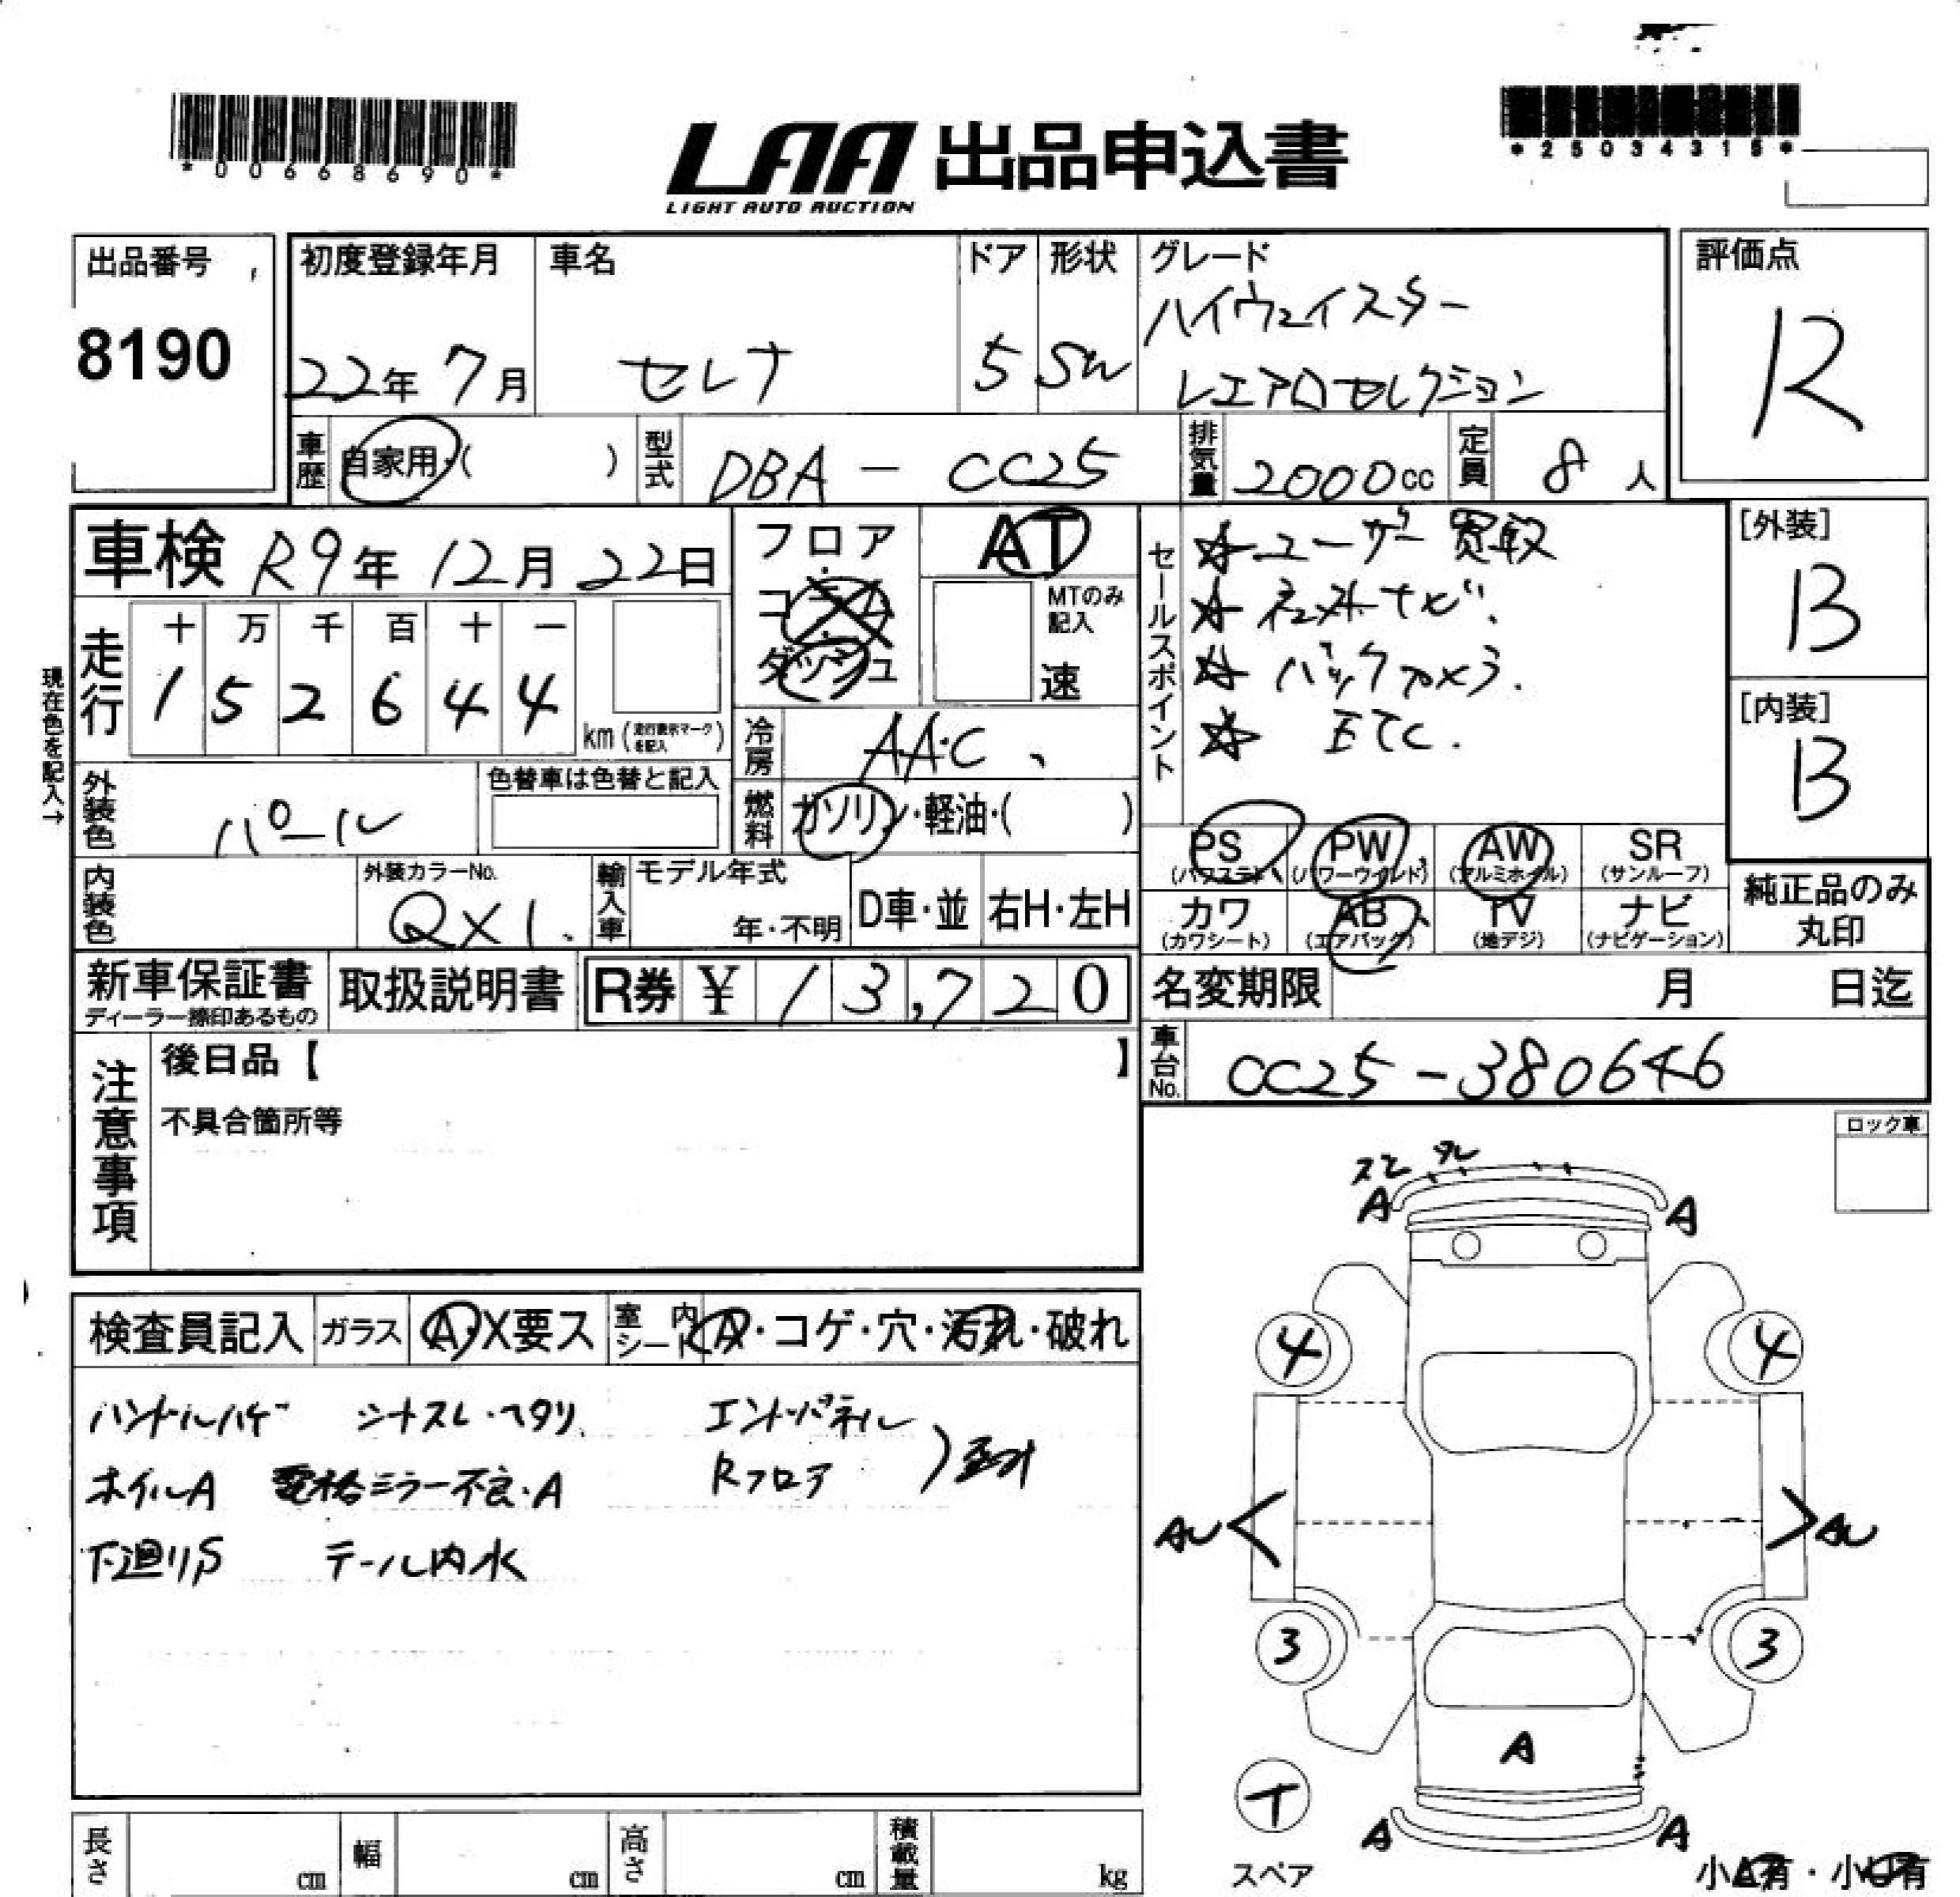 *00668690*
LAA 出品申込書
LIGHT AUTO AUCTION
*25034315*
出品番号
8190
初度登録年月
22年 7月
車名
セレナ
ドア
5
形状
SW
グレード
ハイウェイスター
Vエアロセレクション
評価点
R
車歴
自家用・( )
型式
DBA-CC25
排気量
2000cc
定員
8人
車検 R9年 12月 22日
フロア
コラム
ダッシュ
AT
MTのみ記入
速
セールスポイント
☆ユーザー買取
☆社外ナビ.
☆バックカメラ.
☆ ETC.
[外装]
B
[内装]
B
現在色を記入→
走行
十 万 千 百 十 一
1 5 2 6 4 4
km(走行表示マークを記入)
冷房
AAC
外装色
パール
色替車は色替と記入
燃料
ガソリン・軽油・( )
PS
(パワステ)
PW
(パワーウインド)
AW
(アルミホイル)
SR
(サンルーフ)
内装色
外装カラーNo.
QX1.
輸入車
モデル年式
年・不明
D車・並
右H・左H
カワ
(カワシート)
AB
(エアバッグ)
TV
(地デジ)
ナビ
(ナビゲーション)
純正品のみ
丸印
新車保証書
ディーラー捺印あるもの
取扱説明書
R券 ¥ 13,720
名変期限 月 日迄
車台No.
CC25-380646
注意事項
後日品【 】
不具合箇所等
ロック車
検査員記入
ガラス
A・X要ス
室内シート
A・コゲ・穴・汚れ・破れ
ハンドルハゲ シートスレ・ヘタリ エンドパネル
ホイルA 電格ミラー不良・A Rフロア
下廻りS テール内水
A A
4 4
AU AU
3 3
A
T
A A
スペア
小A有・小U有
長さ cm
幅 cm
高さ cm
積載量 kg